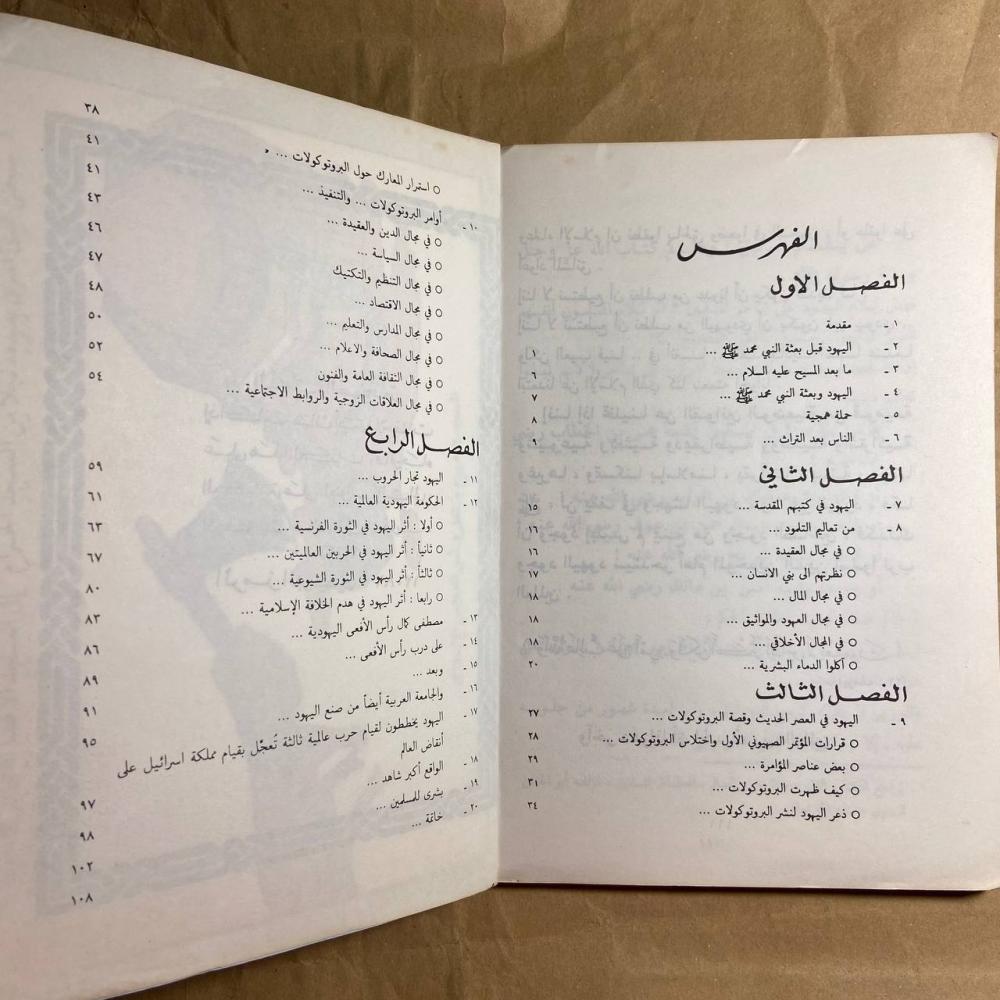 الفهرس
الفصل الاول
١ ـ مقدمة
٢ ـ اليهود قبل بعثة النبي محمد ﷺ ... ١
٣ ـ ما بعد المسيح عليه السلام ... ٦
٤ ـ اليهود وبعثة النبي محمد ﷺ ... ٧
٥ ـ حملة همجية ٨
٦ ـ الناس بعد التراث ... ٩
الفصل الثاني
٧ ـ اليهود في كتبهم المقدسة ... ١٥
٨ ـ من تعاليم التلمود ... ١٦
○ في مجال العقيدة ... ١٦
○ نظرتهم الى بني الانسان ... ١٧
○ في مجال المال ... ١٨
○ في مجال العهود والمواثيق ... ١٨
○ في المجال الأخلاقي ... ١٨
○ آكلوا الدماء البشرية ... ٢٠
الفصل الثالث
٩ ـ اليهود في العصر الحديث وقصة البروتوكولات ... ٢٧
○ قرارات المؤتمر الصهيوني الأول واختلاس البروتوكولات ... ٢٨
○ بعض عناصر المؤامرة ... ٢٩
○ كيف ظهرت البروتوكولات ... ٣١
○ ذعر اليهود لنشر البروتوكولات ... ٣٤
○ استرار المعارك حول البروتوكولات ... ٣٨
١٠ ـ أوامر البروتوكولات ... والتنفيذ ... ٤١
○ في مجال الدين والعقيدة ... ٤١
○ في مجال السياسة ... ٤٣
○ في مجال التنظيم والتكتيك ٤٦
○ في مجال الاقتصاد ... ٤٧
○ في مجال المدارس والتعليم ... ٤٨
○ في مجال الصحافة والاعلام ... ٥٠
○ في مجال الثقافة العامة والفنون ٥٢
○ في مجال العلاقات الزوجية والروابط الاجتماعية ... ٥٤
الفصل الرابع
١١ ـ اليهود تجار الحروب ... ٥٩
١٢ ـ الحكومة اليهودية العالمية ... ٦١
○ أولا : أثر اليهود في الثورة الفرنسية ... ٦٣
○ ثانياً : أثر اليهود في الحربين العالميتين ... ٦٧
○ ثالثاً : أثر اليهود في الثورة الشيوعية ... ٨٠
○ رابعا : أثر اليهود في هدم الخلافة الإسلامية ... ٨٣
١٣ ـ مصطفى كمال رأس الأفعى اليهودية ... ٨٦
١٤ ـ على درب رأس الأفعى ... ٨٩
١٥ ـ وبعد ... ٩١
١٦ ـ والجامعة العربية أيضاً من صنع اليهود ... ٩٥
١٧ ـ اليهود يخططون لقيام حرب عالمية ثالثة تُعجّل بقيام مملكة اسرائيل على
أنقاض العالم ٩٧
١٨ ـ الواقع أكبر شاهد ... ٩٨
١٩ ـ بشرى للمسلمين ... ١٠٢
٢٠ ـ خاتمة ... ١٠٨